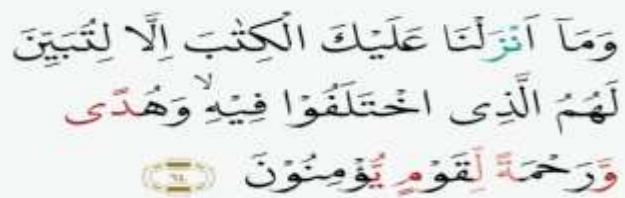 وَمَآ اَنْزَلْنَا عَلَيْكَ الْكِتٰبَ اِلَّا لِتُبَيِّنَ
لَهُمُ الَّذِى اخْتَلَفُوْا فِيْهِۙ وَهُدًى
وَّرَحْمَةً لِّقَوْمٍ يُّؤْمِنُوْنَ ﴿٦٤﴾